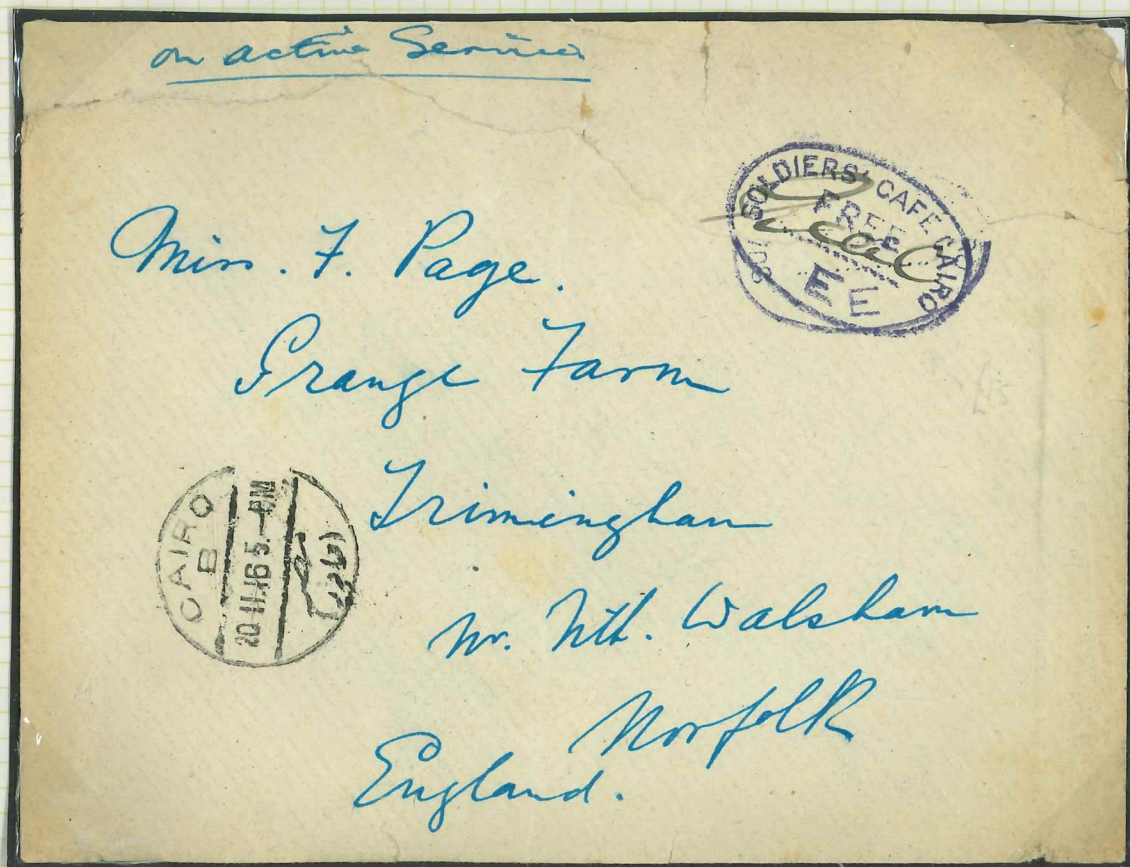 on active Service
SOLDIERS' CAFE CAIRO
FREE
E E
Miss. F. Page.
Grange Farm
Trimingham
Nr. Nth. Walsham
Norfolk
England.
CAIRO
B
20.11.16 5.-PM